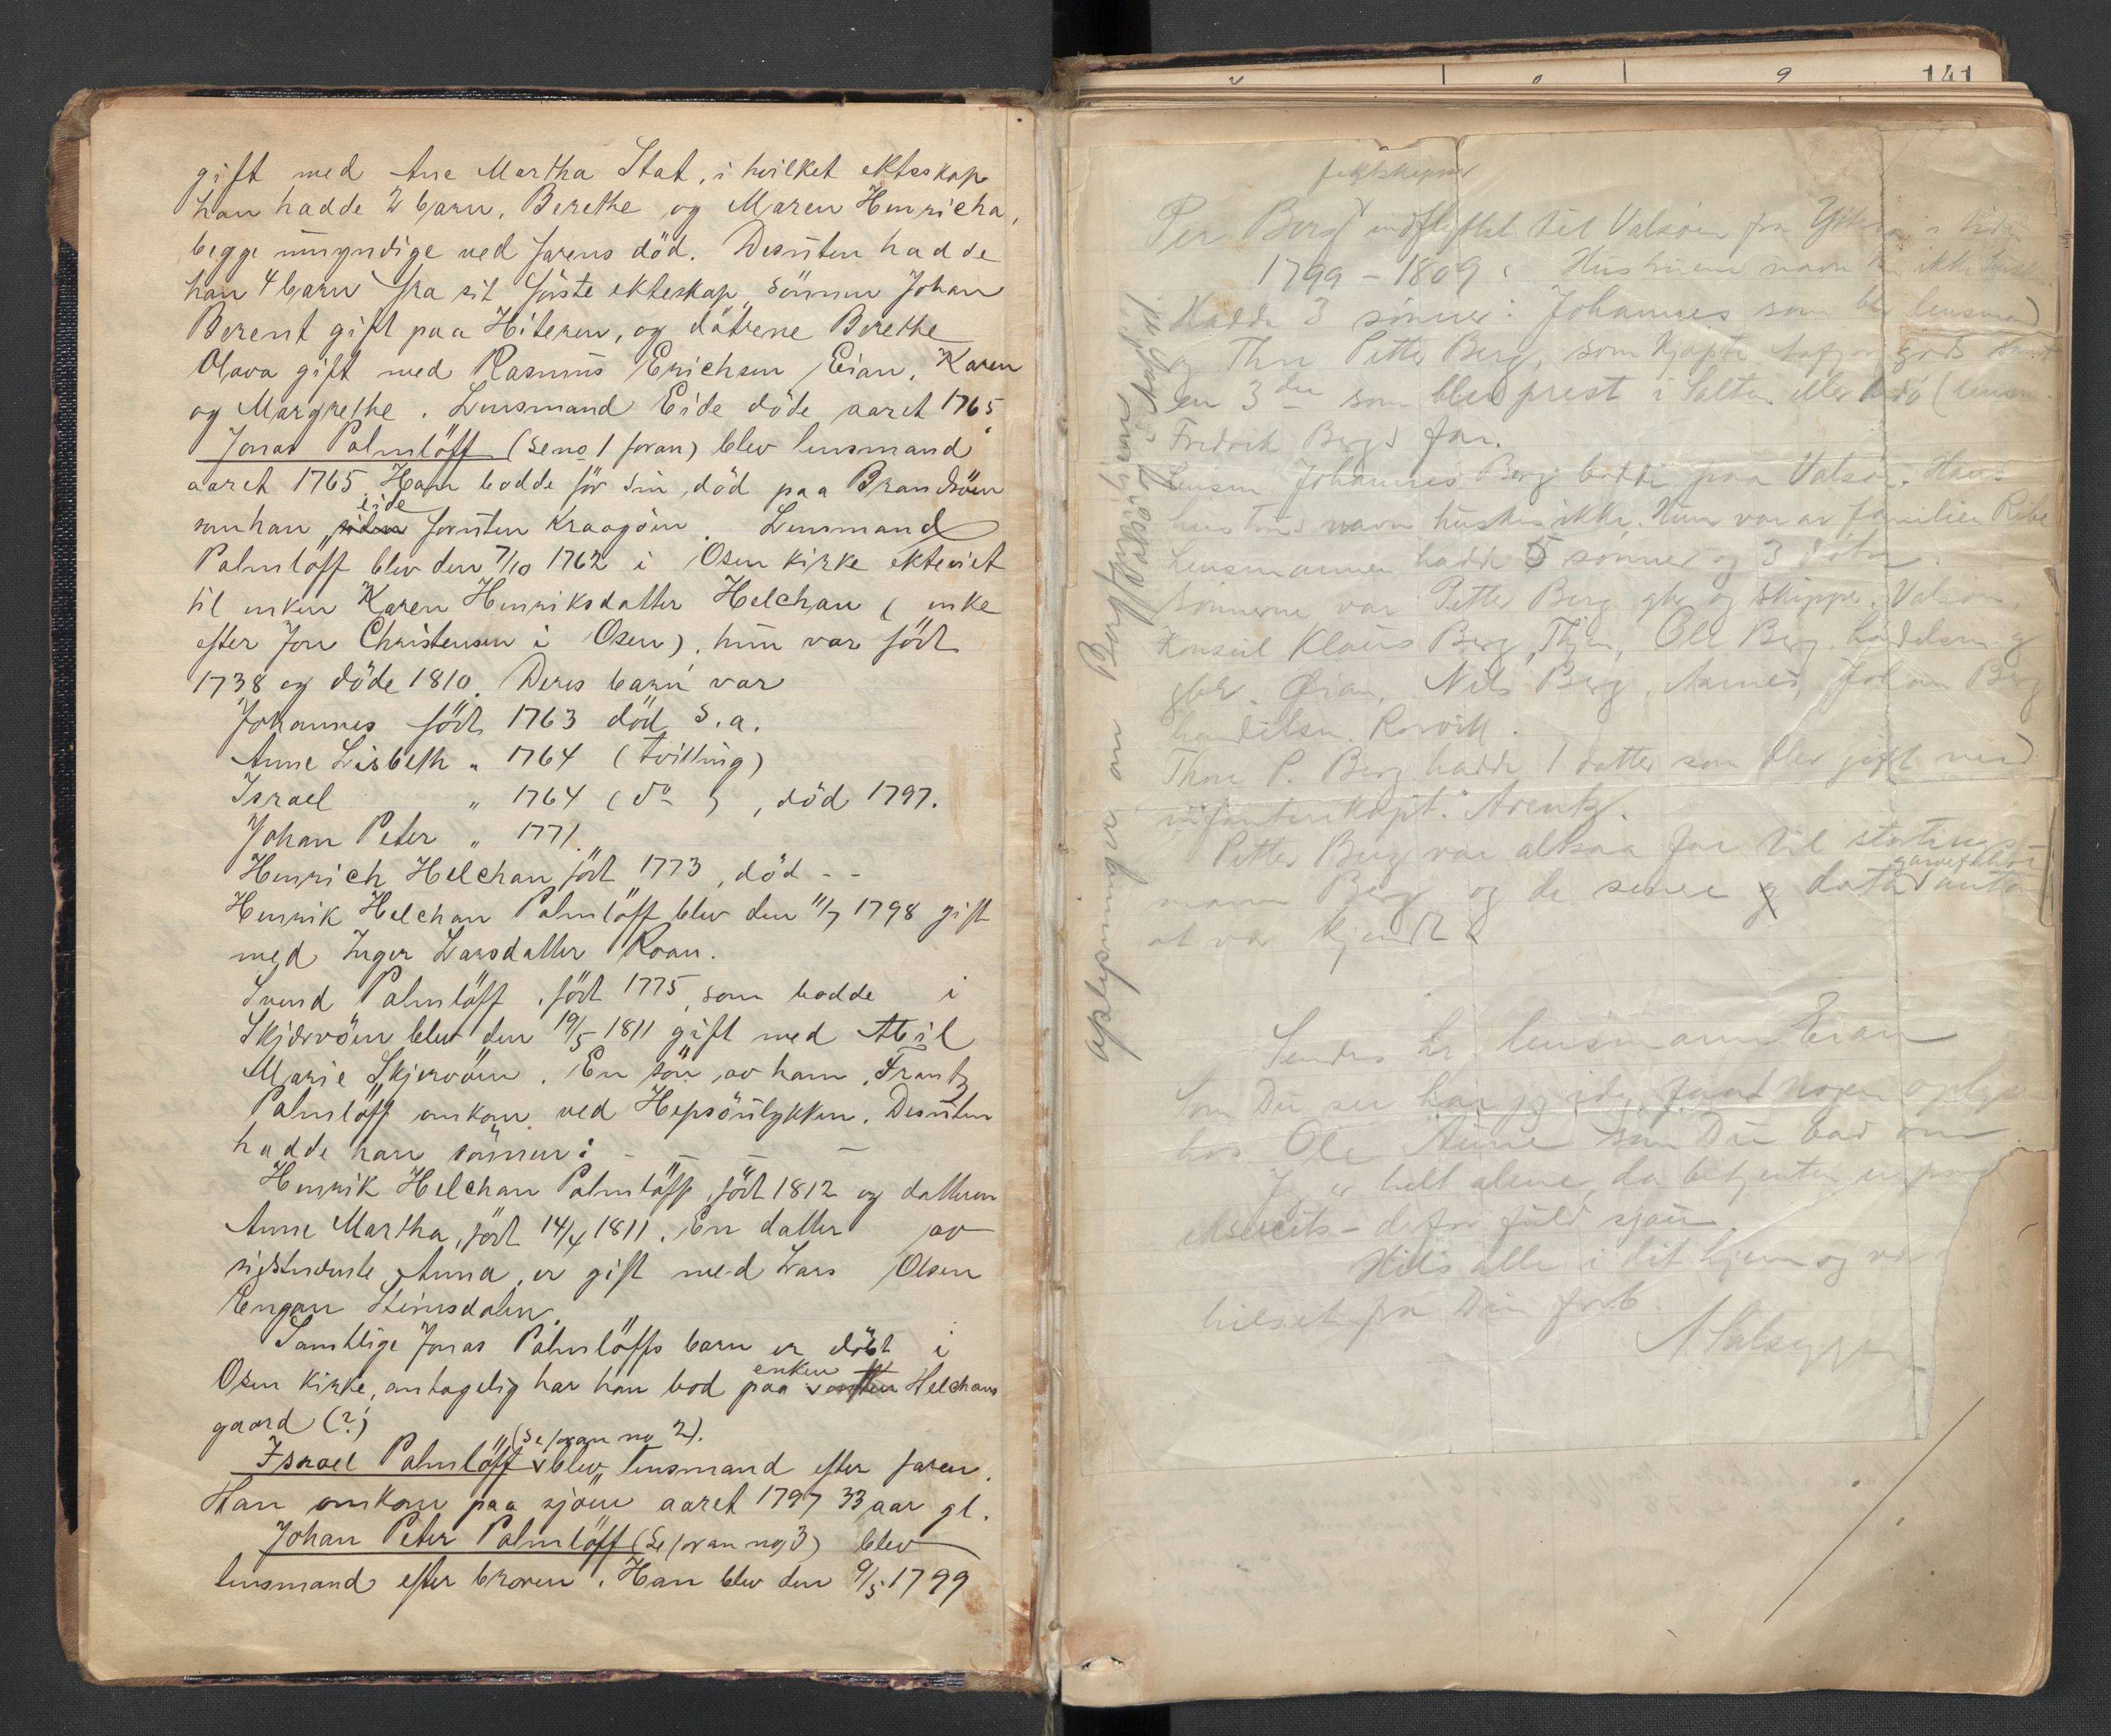 gift med Ane Martha Stat, i hvilket ekteskap
han hadde 2 barn, Berethe og Maren Henricha,
begge umyndige ved farens död. Desuten hadde
han 4 barn fra sit förste ekteskap sönnen Johan
Berent gift paa Hiteren, og dötrene Berethe
Olava gift med Rasmus Erichsen Eian, Karen
og Margrethe. Lensmand Eide döde aaret 1765.
Jonas Palmlöff (se no 1 foran) blev lensmand
aaret 1765. Han bodde för sin död paa Brandsöen
som han eide foruten Kraagöen. Lensmand
Palmlöff blev den 7/10 1762 i Osen kirke ekteviet
til enken Karen Henriksdatter Helchan (enke
efter Jon Christensen i Osen), hun var födt
1738 og döde 1810. Deres barn var
Johannes födt 1763 död s.a.
Anne Lisbeth " 1764 (tvilling)
Israel " 1764 (do), död 1797.
Johan Peter " 1771.
Henrich Helchan födt 1773, död - -
Henrik Helchan Palmlöff blev den 11/7 1798 gift
med Inger Larsdatter Roan.
Svend Palmlöff, födt 1775, som bodde i
Skjervöen blev den 19/5 1811 gift med Abil
Marie Skjervöen. En sön av ham, Frantz
Palmlöff omkom ved Hepsöulykken. Desuten
hadde han sönnen: - - - -
Henrik Helchan Palmlöff, födt 1812 og datteren
Anne Martha, födt 14/4 1811. En datter av
sidstnevnte, Anna, er gift med Lars Olsen
Engan Steinsdalen.
Samtlige Jonas Palmlöffs barn er döbt i
Osen kirke, antagelig har han bod paa enken Helchans
gaard (?)
Israel Palmlöff (se foran no 2). blev lensmand efter faren.
Han omkom paa sjöen aaret 1797 33 aar gl.
Johan Peter Palmlöff (se foran no 3) blev
lensmand efter broren. Han blev den 9/5 1799
141
oplysninger om Berg
Valsöi
Per Berg indflyttet til Valsöen fra
1799 - 1809. Hustruens navn ikke
Hadde 3 sönner: Johannes som blev lensmand
og Thore Petter Berg, som kjöpte
en 3den som blev prest i Salten eller Bodö (lensm.
Fredrik Bergs far.
Lensm. Johannes Berg bodde paa Valsöi. Hans
hustrus navn huskes ikke. Hun var av familien
Lensmannen hadde 5 sönner og 3 dötre.
Sönnerne var Petter Berg gbr og skipper, Valsöen,
Konsul Klaus Berg, Thjem, Ole Berg, handelsm. og
gbr. Öian, Nils Berg, Aarnes, Johan Berg
handelsm. Rörvik.
Thore P. Berg hadde 1 datter som blev gift med
infanterikapt. Arentz.
Petter Berg var altsaa far til stortings-
mann Berg og de senere
at var kjendt
Sendes hr. lensmann Eian
Som Du ser har jeg idag faaet nogen oplys
hos Ole Aune som Du bad om.
Jeg er helt alene, da betjenten er paa
eksersits - derfor fuld sjau.
Hils alle i dit hjem og vær
hilset fra Din forb.